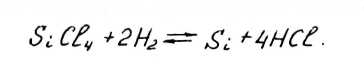 SiCl₄ + 2H₂ ⇌ Si + 4HCl.